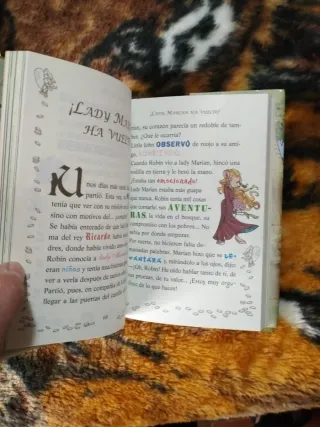 ¡LADY MA
HA VUEL
Unos días más
partió. Esta vez,
tenía que ver con su misión
sino con motivos del... coraz
Se había enterado de que la
del rey Ricardo había
dres, donde había vivido
Robin conocía a lady
eran niños y sentía mucha
ver a verla después de tan
Partió, pues, en compañía de
llegar a las puertas del castill
¡LADY MARIAN HA VUELTO!
man, su corazón parecía un redoble de tam-
bor. ¿Qué le ocurría?
Little John OBSERVÓ de reojo a su ami-
go.
Cuando Robin vio a lady Marian, hincó una
rodilla en tierra y le besó la mano.
¡Estaba tan emocionado!
Lady Marian estaba más guapa
que nunca. Robin tenía mil cosas
que contarle: sus AVENTU-
RAS, la vida en el bosque, su
compromiso con los pobres... No
sabía por dónde empezar.
Por suerte, no hicieron falta de-
masiadas palabras. Marian hizo que se LE-
VANTARA y, mirándolo a los ojos, dijo:
—¡Oh, Robin! He oído hablar tanto de ti, de
tus proezas, de tu valor... ¡Estoy muy orgu-
llosa de lo que haces!